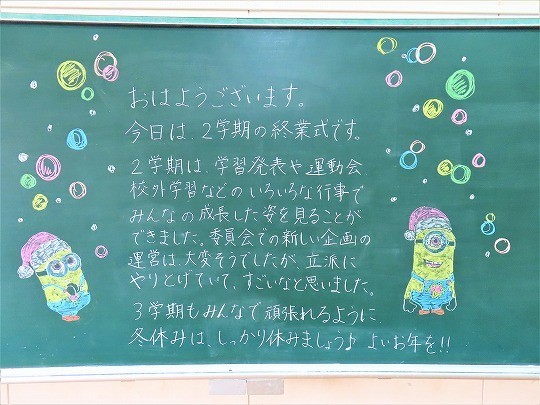 おはようございます。
今日は、2学期の終業式です。
2学期は、学習発表や運動会、
校外学習などのいろいろな行事で
みんなの成長した姿を見ることが
できました。委員会での新しい企画の
運営は、大変そうでしたが、立派に
やりとげていて、すごいなと思いました。
3学期もみんなで頑張れるように
冬休みは、しっかり休みましょう♪ よいお年を!!